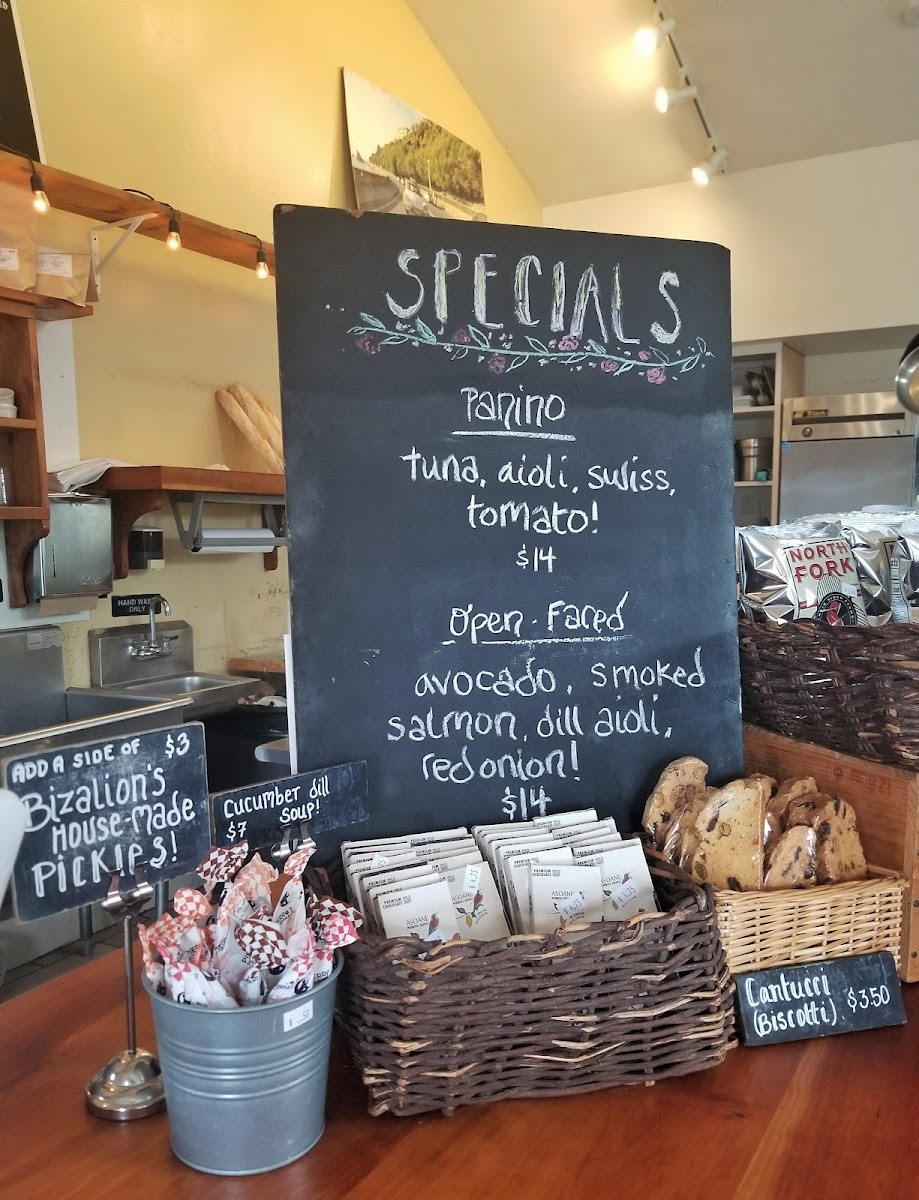 SPECIALS
Panino
tuna, aioli, swiss,
tomato!
$14
Open-Faced
avocado, smoked
salmon, dill aioli,
red onion!
$14
ADD A SIDE OF $3
Bizalion's
House-Made
Pickles!
Cucumber dill
$7 Soup!
HAND WASH
ONLY
NORTH
FORK
PREMIUM
CHOCOLATE
ASOANE
4.25
Cantucci
(Biscotti) $3.50